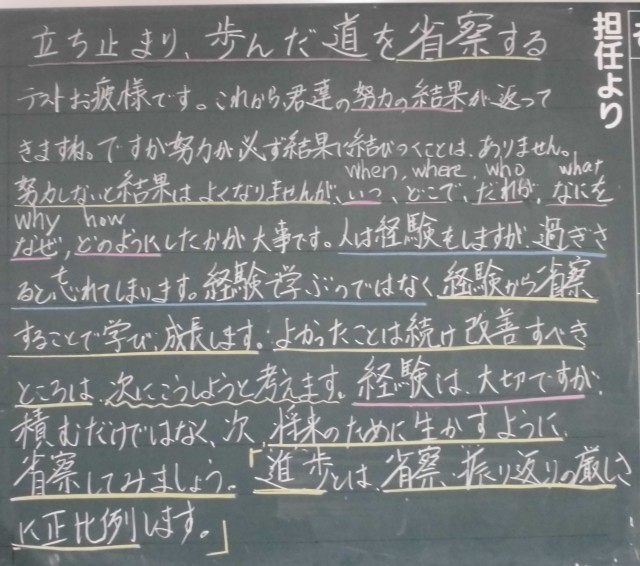 担任より
立ち止まり、歩んだ道を省察する
テストお疲れ様です。これから、君達の努力の結果が返って
きますね。ですが努力が必ず結果に結びつくことは、ありません。
when, where, who what
努力しないと結果はよくなりませんが、いつ、どこで、だれが、なにを
why how
なぜ、どのようにしたかが大事です。人は経験もしますが、過ぎさ
ると忘れてしまいます。経験で学ぶのではなく経験から省察
することで学び、成長します。よかったことは続け改善すべき
ところは、次にこうしようと考えます。経験は、大切ですが、
積むだけではなく、次、将来のために生かすように、
省察してみましょう。「進歩とは、省察、振り返りの厳しさ
に正比例します。」